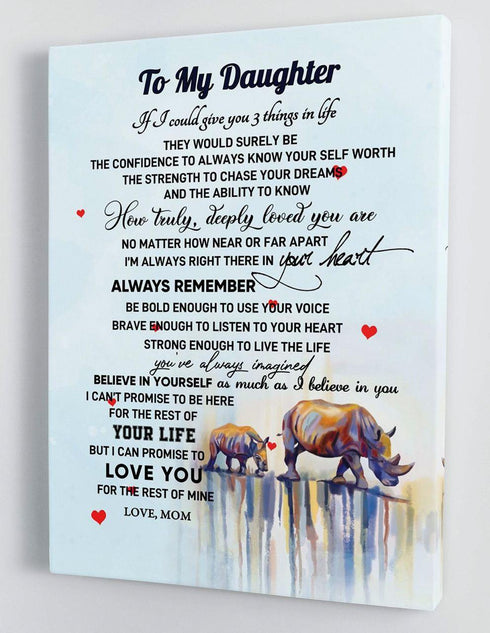 To My Daughter
If I could give you 3 things in life
THEY WOULD SURELY BE
THE CONFIDENCE TO ALWAYS KNOW YOUR SELF WORTH
THE STRENGTH TO CHASE YOUR DREAMS
AND THE ABILITY TO KNOW
How truly, deeply loved you are
NO MATTER HOW NEAR OR FAR APART
I'M ALWAYS RIGHT THERE IN your heart
ALWAYS REMEMBER
BE BOLD ENOUGH TO USE YOUR VOICE
BRAVE ENOUGH TO LISTEN TO YOUR HEART
STRONG ENOUGH TO LIVE THE LIFE
you've always imagined
BELIEVE IN YOURSELF as much as I believe in you
I CAN'T PROMISE TO BE HERE
FOR THE REST OF
YOUR LIFE
BUT I CAN PROMISE TO
LOVE YOU
FOR THE REST OF MINE
LOVE, MOM